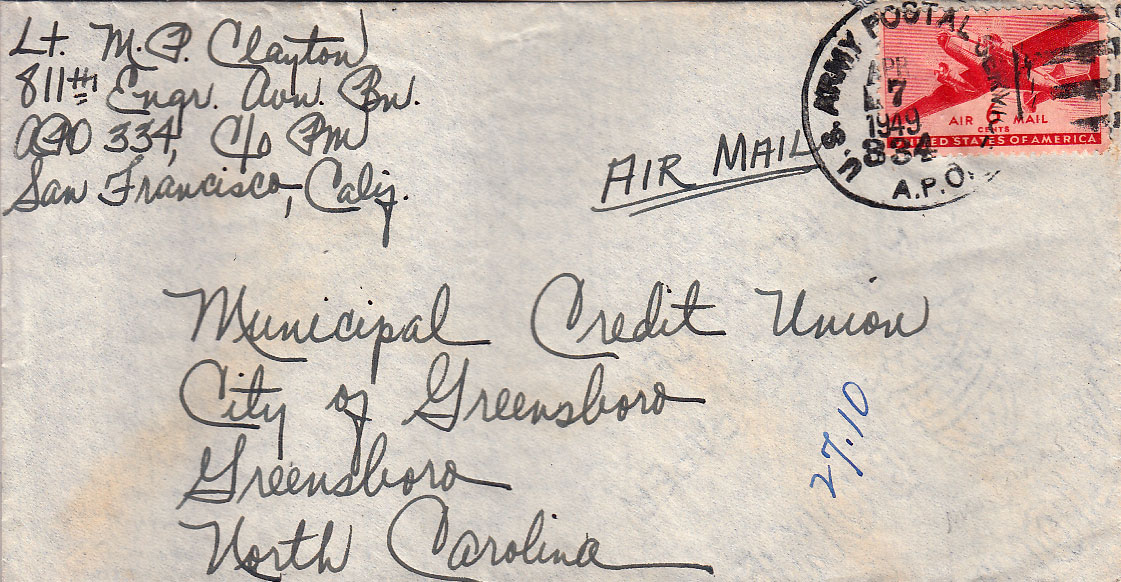 Lt. M.P. Clayton
811th Engr. Avn. Bn.
APO 334, C/o PM
San Francisco, Calif.
AIR MAIL
U.S. ARMY POSTAL SERVICE
APR
7
1949
334
A.P.O.
AIR MAIL
CENTS
UNITED STATES OF AMERICA
Municipal Credit Union
City of Greensboro
Greensboro
North Carolina
27.10